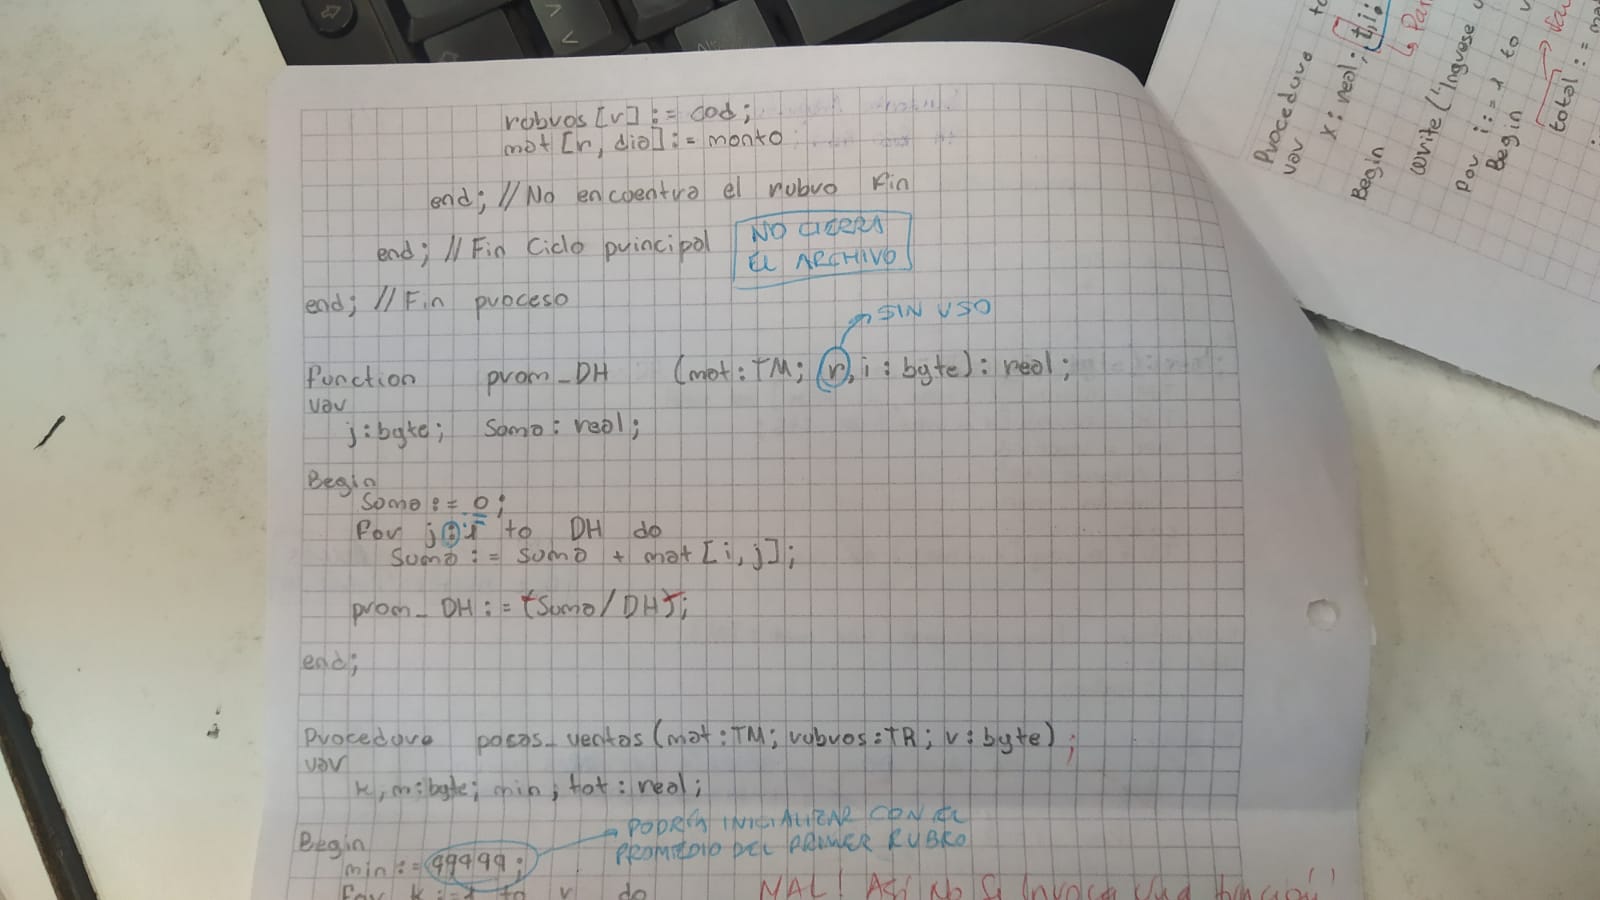 robros[r] := cod;
mat[r, dia] := monto
end; // No encuentra el rubro Fin
end; // Fin Ciclo principal
NO CIERRA
EL ARCHIVO
end; // Fin proceso
SIN USO
Function prom_DH (mat: TM; r, i : byte) : real;
var
j: byte; Suma: real;
Begin
Suma := 0;
For j := 1 to DH do
Suma := suma + mat [i, j];
prom_DH := (Suma / DH);
end;
Procedure pocas_ventas (mat: TM; rubros: TR; r: byte);
var
k, m: byte; min, tot: real;
PODRÍA INICIALIZAR CON EL
PROMEDIO DEL PRIMER RUBRO
Begin
min := 99999;
For k := 1 to r do
MAL! Así No Se Invoca una función!!
Procedure
var
x: real;
Begin
Write("Ingrese
For i := 1 to
Begin
total :=